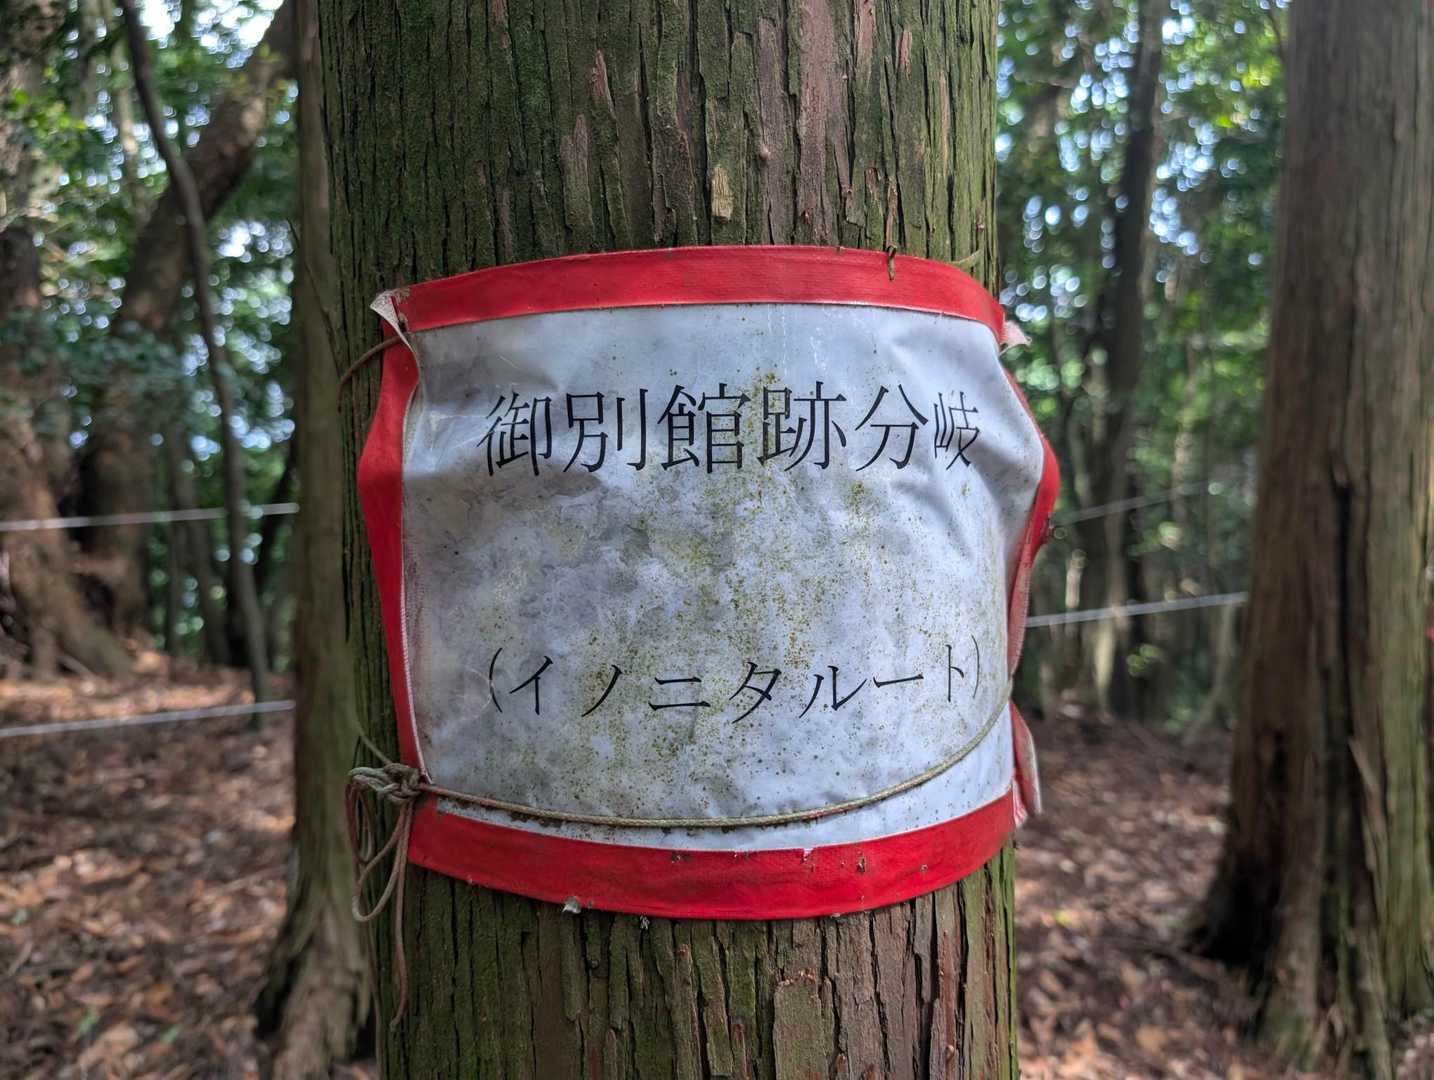 御別館跡分岐
（イノニタルート）